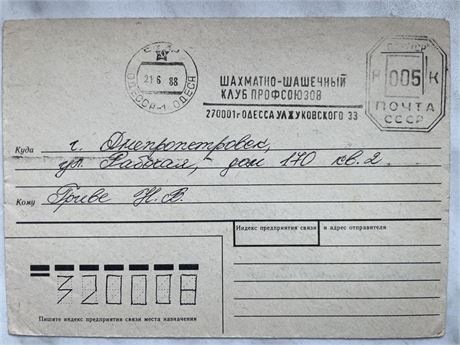 21 6 88
ОДЕССА
ШАХМАТНО-ШАШЕЧНЫЙ
КЛУБ ПРОФСОЮЗОВ
270001 г ОДЕССА УЛ ЖУКОВСКОГО 33
Р 005 К
ПОЧТА
СССР
Куда г. Днепропетровск,
ул. Рабочая, дом 170 кв. 2.
Кому Гриве Н. В.
Индекс предприятия связи и адрес отправителя
320008
Пишите индекс предприятия связи места назначения